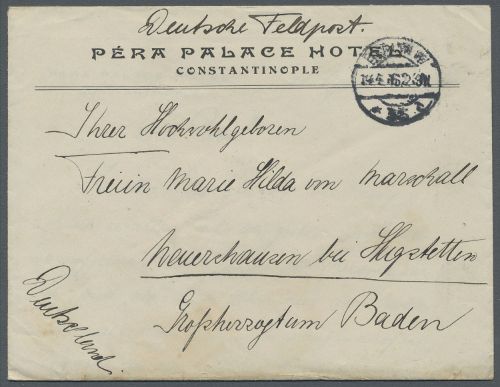 Deutsche Feldpost.
PÉRA PALACE HOTEL
CONSTANTINOPLE
BERLIN W
14.4.16.2-3N
Ihrer Hochwohlgeboren
Freiin Marie Hilda von Marschall
Neuershausen bei Hugstetten
Großherzogtum Baden
Deutschland.